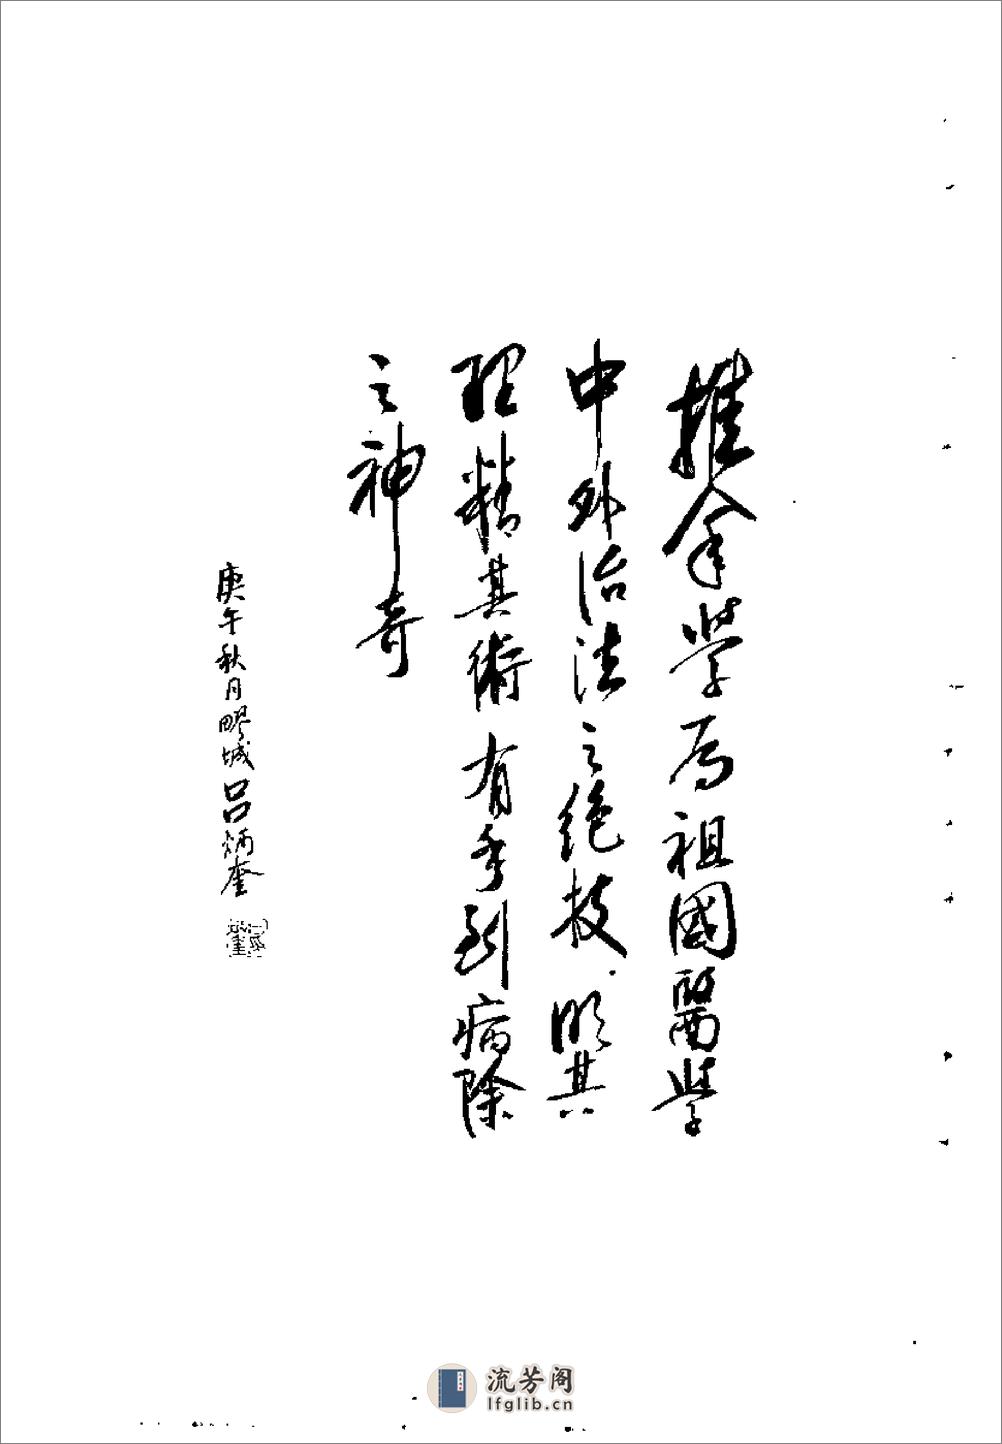 推拿学为祖國醫学
中外治法之絶技．明其
理精其術有手到病除
之神奇
庚午秋月疁城吕炳奎
流芳阁
lfglib.cn